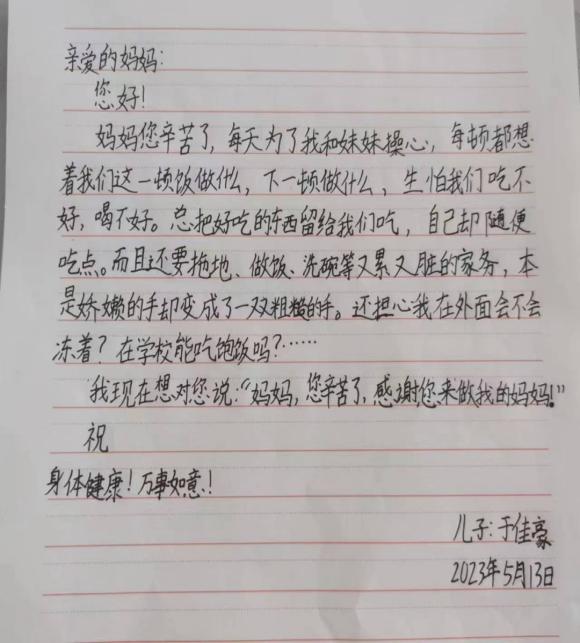 亲爱的妈妈:
您好!
妈妈您辛苦了,每天为了我和妹妹操心,每顿都想
着我们这一顿饭做什么,下一顿做什么,生怕我们吃不
好,喝不好。总把好吃的东西留给我们吃,自己却随便
吃点。而且还要拖地、做饭、洗碗等又累又脏的家务,本
是娇嫩的手却变成了一双粗糙的手。还担心我在外面会不会
冻着?在学校能吃饱饭吗?……
我现在想对您说:“妈妈,您辛苦了,感谢您来做我的妈妈!”
祝
身体健康!万事如意!
儿子:于佳豪
2023年5月13日